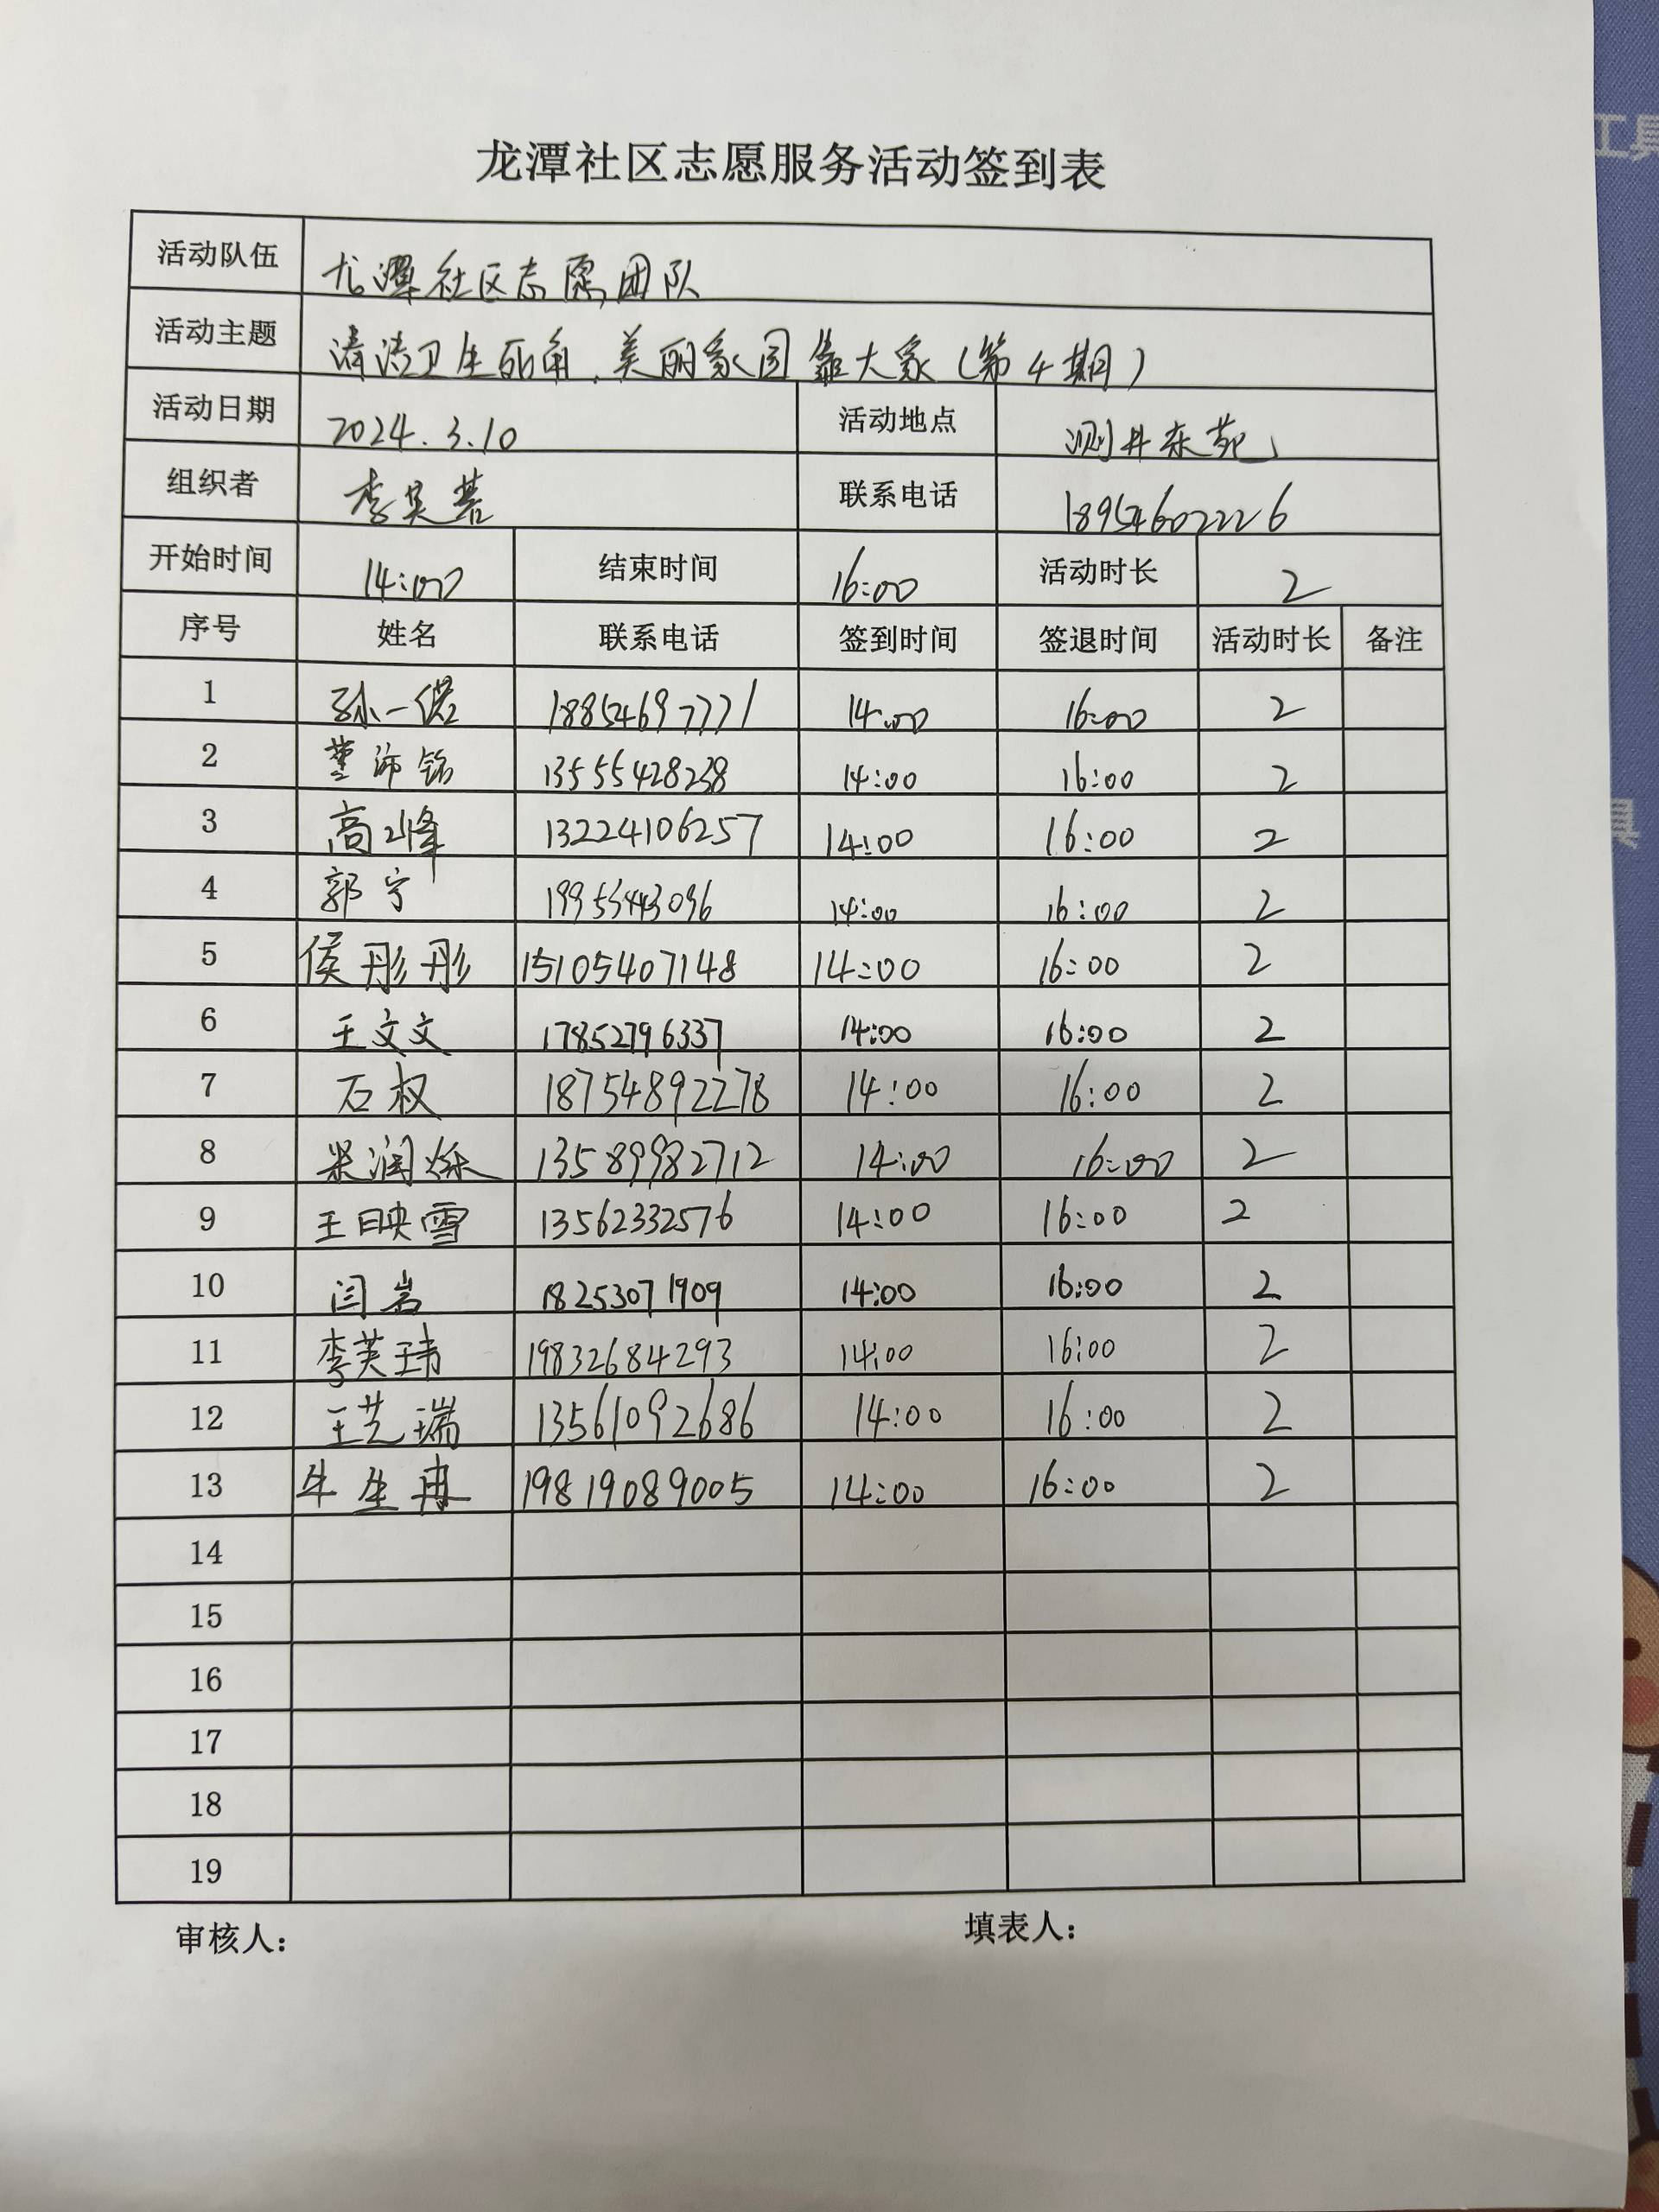 龙潭社区志愿服务活动签到表
活动队伍 龙潭社区志愿团队
活动主题 清洁卫生死角,美丽家园靠大家(第4期)
活动日期 2024.3.10 活动地点 测井东苑
组织者 联系电话 18954602226
开始时间 14:00 结束时间 16:00 活动时长 2
序号 姓名 联系电话 签到时间 签退时间 活动时长 备注
1 孙一诺 18854697771 14:00 16:00 2
2 董沛铭 13555428238 14:00 16:00 2
3 高小峰 13224106257 14:00 16:00 2
4 郭宁 14:00 16:00 2
5 侯彤彤 15105407148 14:00 16:00 2
6 王文文 17852796337 14:00 16:00 2
7 石权 18754892278 14:00 16:00 2
8 13589982712 14:00 16:00 2
9 王映雪 13562332576 14:00 16:00 2
10 闫嵩 18253071909 14:00 16:00 2
11 李芙玮 19832684293 14:00 16:00 2
12 王艺瑞 13561092686 14:00 16:00 2
13 牛生冉 19819089005 14:00 16:00 2
14
15
16
17
18
19
审核人: 填表人:
工具
具